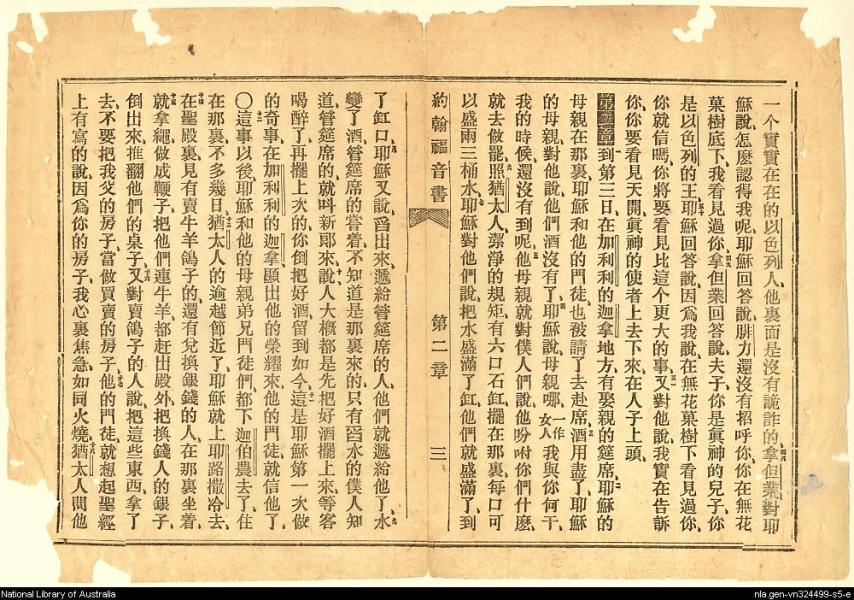 一个實實在在的以色列人、他裏面是沒有詭詐的、拿但業對耶
穌說、怎麼認得我呢、耶穌回答說、腓力還沒有招呼你、你在無花
菓樹底下、我看見過你、拿但業回答說、夫子、你是眞神的兒子、你
是以色列的王、耶穌回答說、因爲我說、在無花菓樹下看見過你、
你就信嗎、你將要看見比這个更大的事、又對他說、我實實在告訴
你、你要看見天開、眞神的使者上去下來、在人子上頭、
第二章到第三日、在加利利的迦拿地方、有娶親的筵席、耶穌的
母親在那裏、耶穌和他的門徒也被請了去赴席、酒用盡了、耶穌
的母親對他說、他們酒沒有了、耶穌說、母親哪、一作女人我與你何干、
我的時候還沒有到呢、他母親就對僕人們說、他吩咐你們什麼、
就去做罷、照猶太人潔淨的規矩、有六口石缸擺在那裏、每口可
以盛兩三桶水、耶穌對他們說、把水盛滿了缸、他們就盛滿了、到
約翰福音書 第二章 三
了缸口、耶穌又說、舀出來、遞給管筵席的人、他們就遞給他了、水
變了酒、管筵席的嘗着、不知道是那裏來的、只有舀水的僕人知
道、管筵席的就呌新郞來、說、人大槪都是先把好酒擺上來、等客
喝醉了、再擺上次的、你倒把好酒留到如今、這是耶穌第一次做
的奇事、在加利利的迦拿、顯出他的榮耀來、他的門徒就信他了、
〇這事以後、耶穌和他的母親弟兄門徒們、都下迦伯農去了、住
在那裏不多幾日、猶太人的逾越節近了、耶穌就上耶路撒冷去、
在聖殿裏見有賣牛羊鴿子的、還有兌換銀錢的人、在那裏坐着、
就拿繩做成鞭子、把他們連牛羊、都赶出殿外、把換錢人的銀子、
倒出來、推翻他們的桌子、又對賣鴿子的人說、把這些東西拿了
去、不要把我父的房子、當做買賣的房子、他的門徒、就想起聖經
上有寫的說、因爲你的房子、我心裏焦急、如同火燒、猶太人問他
National Library of Australia
nla.gen-vn324499-s5-e